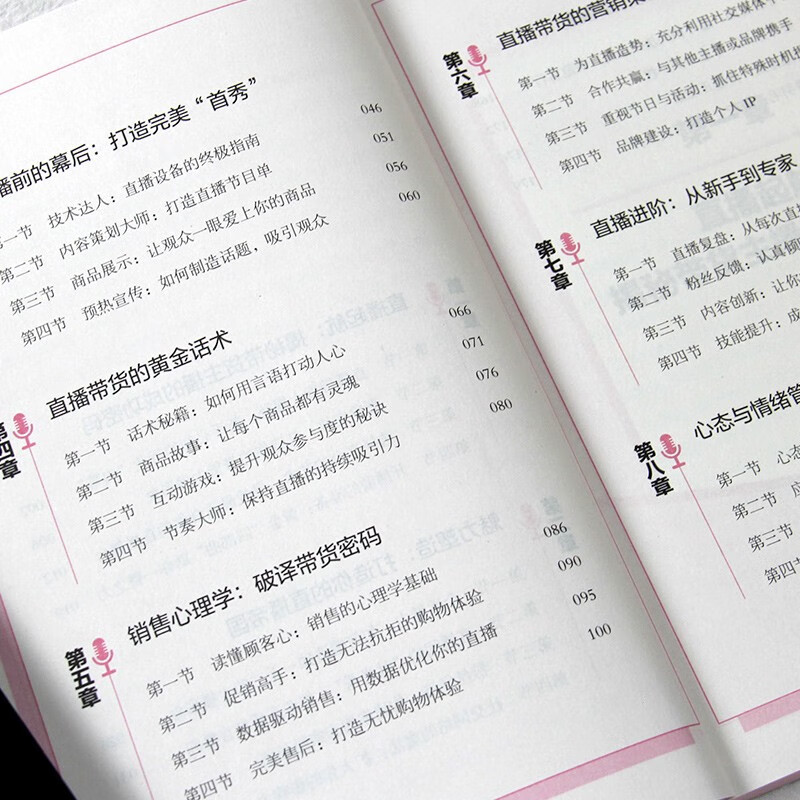 播前的幕后：打造完美“首秀”
第一节 技术达人：直播设备的终极指南 046
第二节 内容策划大师：打造直播节目单 051
第三节 商品展示：让观众一眼爱上你的商品 056
第四节 预热宣传：如何制造话题，吸引观众 060
第四章
直播带货的黄金话术
第一节 话术秘籍：如何用言语打动人心 066
第二节 商品故事：让每个商品都有灵魂 071
第三节 互动游戏：提升观众参与度的秘诀 076
第四节 节奏大师：保持直播的持续吸引力 080
第五章
销售心理学：破译带货密码
第一节 读懂顾客心：销售的心理学基础 086
第二节 促销高手：打造无法抗拒的购物体验 090
第三节 数据驱动销售：用数据优化你的直播 095
第四节 完美售后：打造无忧购物体验 100
第六章
直播带货的营销策
第一节 为直播造势：充分利用社交媒体平
第二节 合作共赢：与其他主播或品牌携手
第三节 重视节日与活动：抓住特殊时机
第四节 品牌建设：打造个人IP
第七章
直播进阶：从新手到专家
第一节 直播复盘：从每次直
第二节 粉丝反馈：认真倾
第三节 内容创新：让你
第四节 技能提升：成
第八章
心态与情绪管
第一节 心态
第二节 应
第三节
第四节